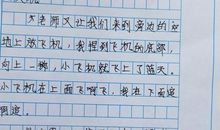 老师又让我们来到旁边的空
地上放飞机,我捏到飞机的底部,
向上一掷,小飞机就飞上了蓝天。
小飞机在上面飞啊飞,我在下面追
啊追。